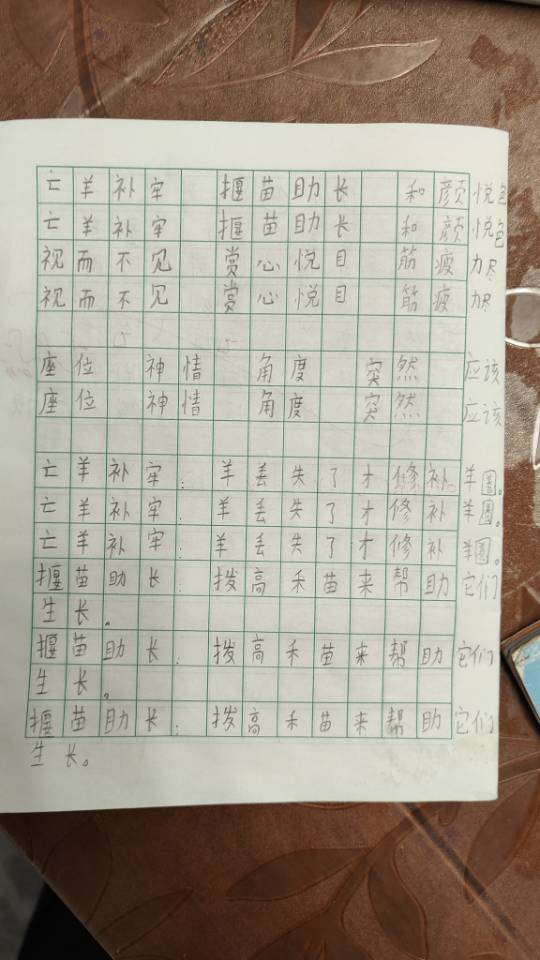 亡羊补牢 揠苗助长 和颜悦色
亡羊补牢 揠苗助长 和颜悦色
视而不见 赏心悦目 筋疲力尽
视而不见 赏心悦目 筋疲力尽
座位 神情 角度 突然 应该
座位 神情 角度 突然 应该
亡羊补牢：羊丢失了才修补羊圈。
亡羊补牢：羊丢失了才修补羊圈。
亡羊补牢：羊丢失了才修补羊圈。
揠苗助长：拨高禾苗来帮助它们
生长。
揠苗助长：拨高禾苗来帮助它们
生长。
揠苗助长：拨高禾苗来帮助它们
生长。